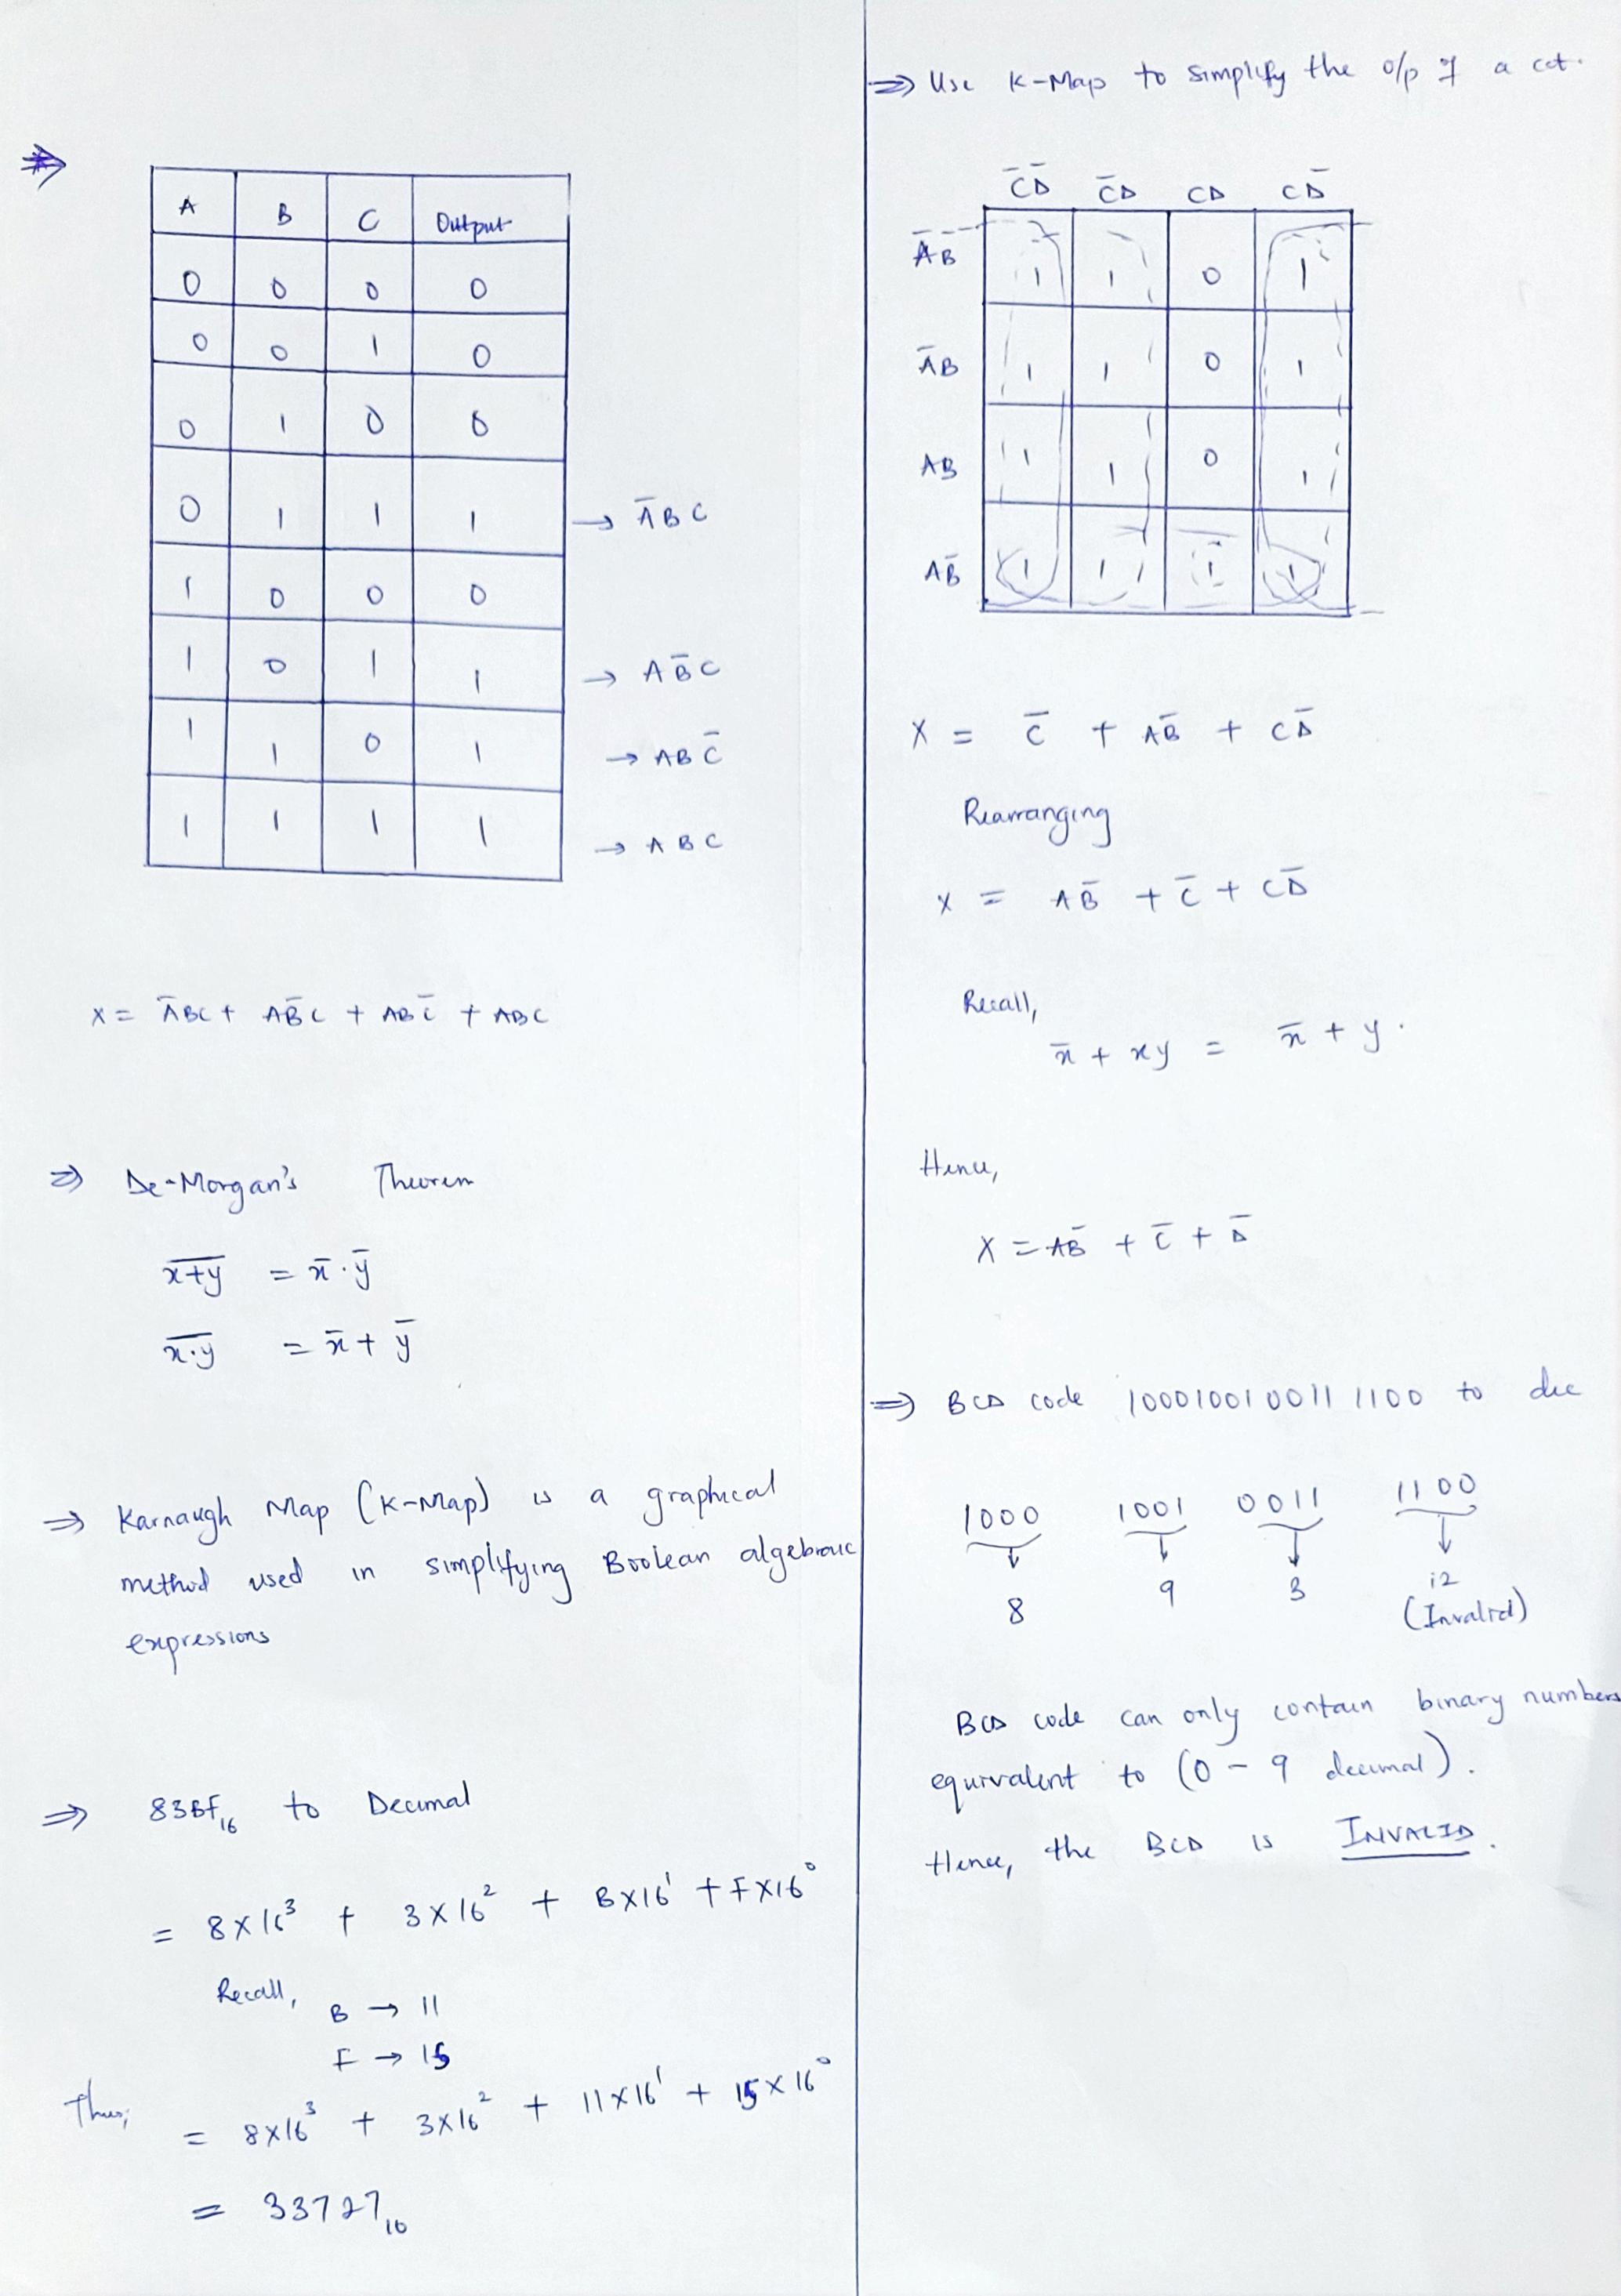 A B C Output
0 0 0 0
0 0 1 0
0 1 0 0
0 1 1 1 → A̅BC
1 0 0 0
1 0 1 1 → AB̅C
1 1 0 1 → ABC̅
1 1 1 1 → ABC
X = A̅BC + AB̅C + ABC̅ + ABC
⇒ De-Morgan's Theorem
\overline{x+y} = x̅ · y̅
\overline{x·y} = x̅ + y̅
⇒ Karnaugh Map (K-Map) is a graphical
method used in simplifying Boolean algebraic
expressions
⇒ 83BF₁₆ to Decimal
= 8×16³ + 3×16² + B×16¹ + F×16⁰
Recall, B → 11
F → 15
Thus; = 8×16³ + 3×16² + 11×16¹ + 15×16⁰
= 33727₁₀
⇒ Use K-Map to simplify the o/p of a cct.
C̅D̅ C̅D CD CD̅
A̅B̅ 1 1 0 1
A̅B 1 1 0 1
AB 1 1 0 1
AB̅ 1 1 1 1
X = C̅ + AB̅ + CD̅
Rearranging
X = AB̅ + C̅ + CD̅
Recall,
x̅ + xy = x̅ + y.
Hence,
X = AB̅ + C̅ + D̅
⇒ BCD code 1000100100111100 to dec
1000 1001 0011 1100
8 9 3 12
(Invalid)
BCD code can only contain binary numbers
equivalent to (0 - 9 decimal).
Hence, the BCD is INVALID.